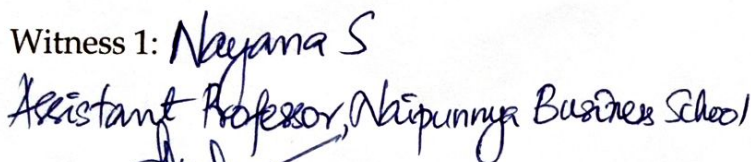 Witness 1: Nayana S
Assistant Professor, Naipunnya Business School